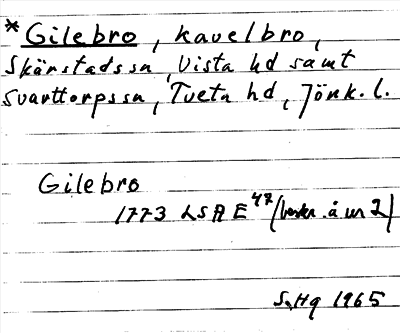 *Gilebro, kavelbro,
Skärstadssn, Vista hd samt
Svarttorpssn, Tveta hd, Jönk. l.
Gilebro
1773 LSA E47 (beskr. å nr 2)
S.Hg 1965